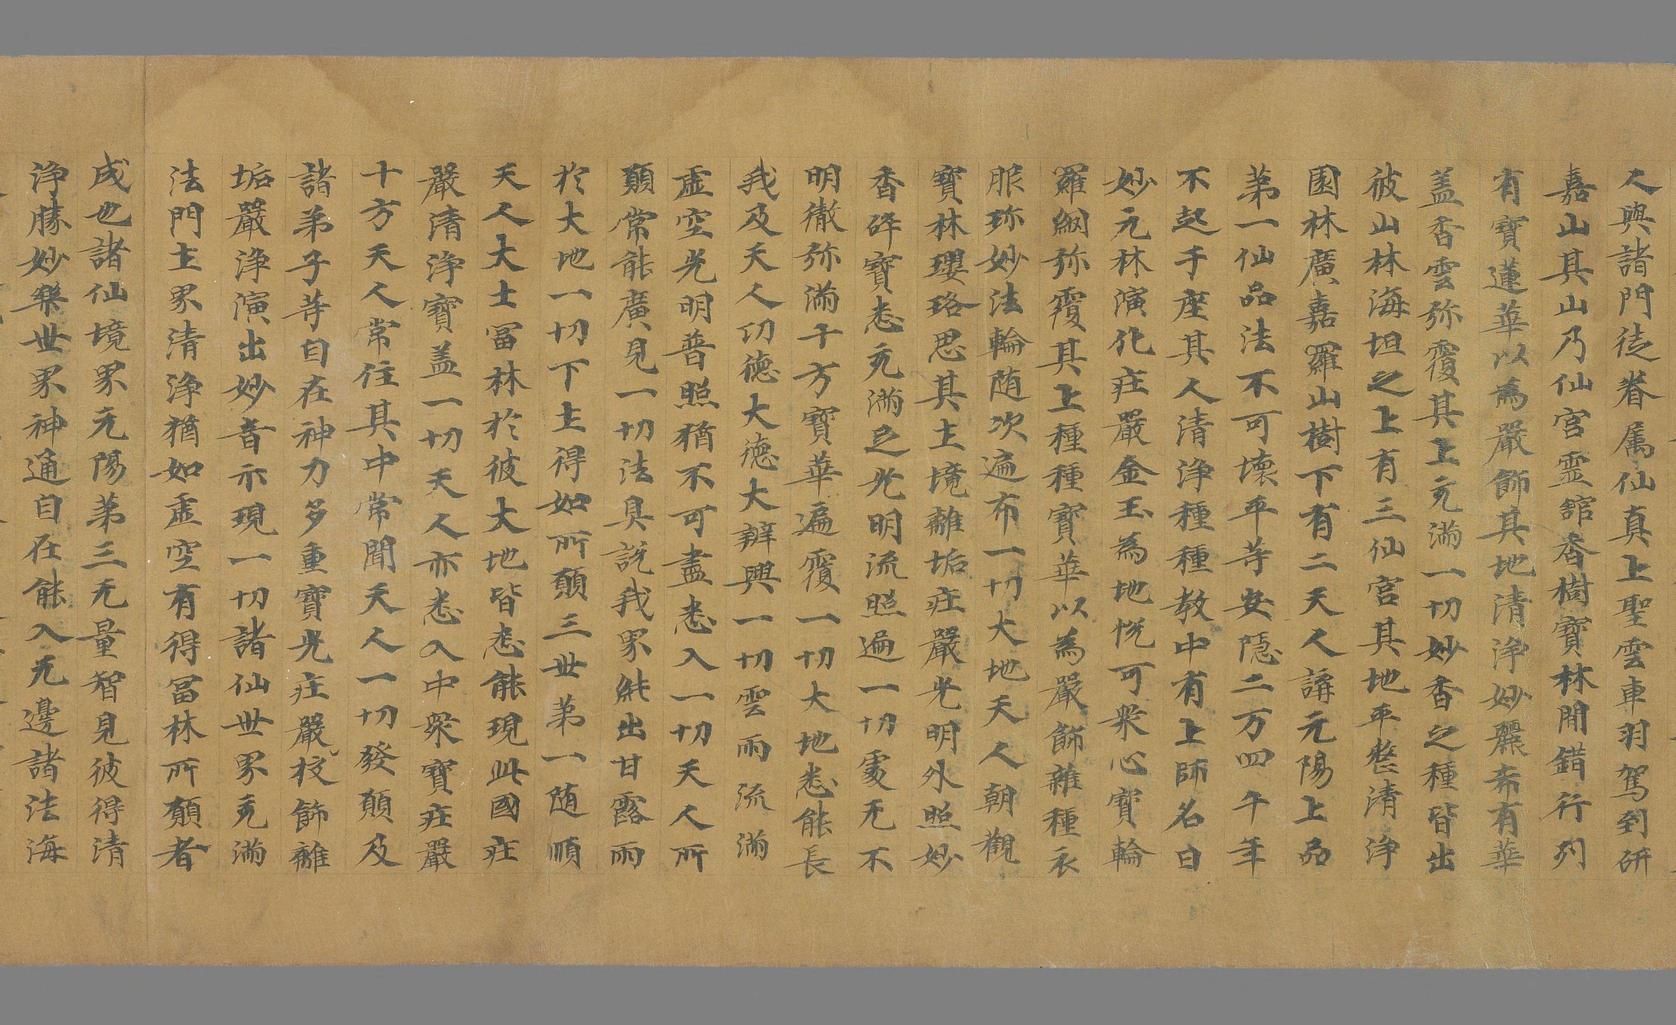 人與諸門徒眷属仙真上聖雲車羽駕到研
嘉山其山乃仙宫靈舘香樹寶林間錯行列
有寶蓮華以為嚴飾其地清淨妙麗希有華
盖香雲弥覆其上充滿一切妙香之種皆出
彼山林海坦之上有三仙宫其地平整清淨
園林廣嘉羅山樹下有二天人講元陽上品
第一仙品法不可壞平等安隱二万四千年
不起于座其人清淨種種教中有上師名曰
妙元林演化庄嚴金玉為地恱可衆心寶輪
羅網弥覆其上種種寶華以為嚴飾雜種衣
服珎妙法輪随次遍布一切大地天人朝觀
寶林瓔珞思其土境離垢庄嚴光明外照妙
香碎寶悉充滿之光明流照遍一切處无不
明徹弥滿十方寶華遍覆一切大地悉能長
我及天人功德大德大辯興一切雲雨流滿
虛空光明普照猶不可盡悉入一切天人所
願常能廣見一切法具説我界能出甘露雨
於大地一切下土得如所願三世第一随順
天人大士冨林於彼大地皆悉能現此國庄
嚴清淨寶盖一切天人亦悉入中衆寶庄嚴
十方天人常住其中常聞天人一切發願及
諸弟子等自在神力多重寶光庄嚴校飾離
垢嚴淨演出妙音示現一切諸仙世界充滿
法門主界清淨猶如虛空有得冨林所願者
成也諸仙境界元陽第三无量智見彼得清
淨勝妙樂世界神通自在能入无邊諸法海